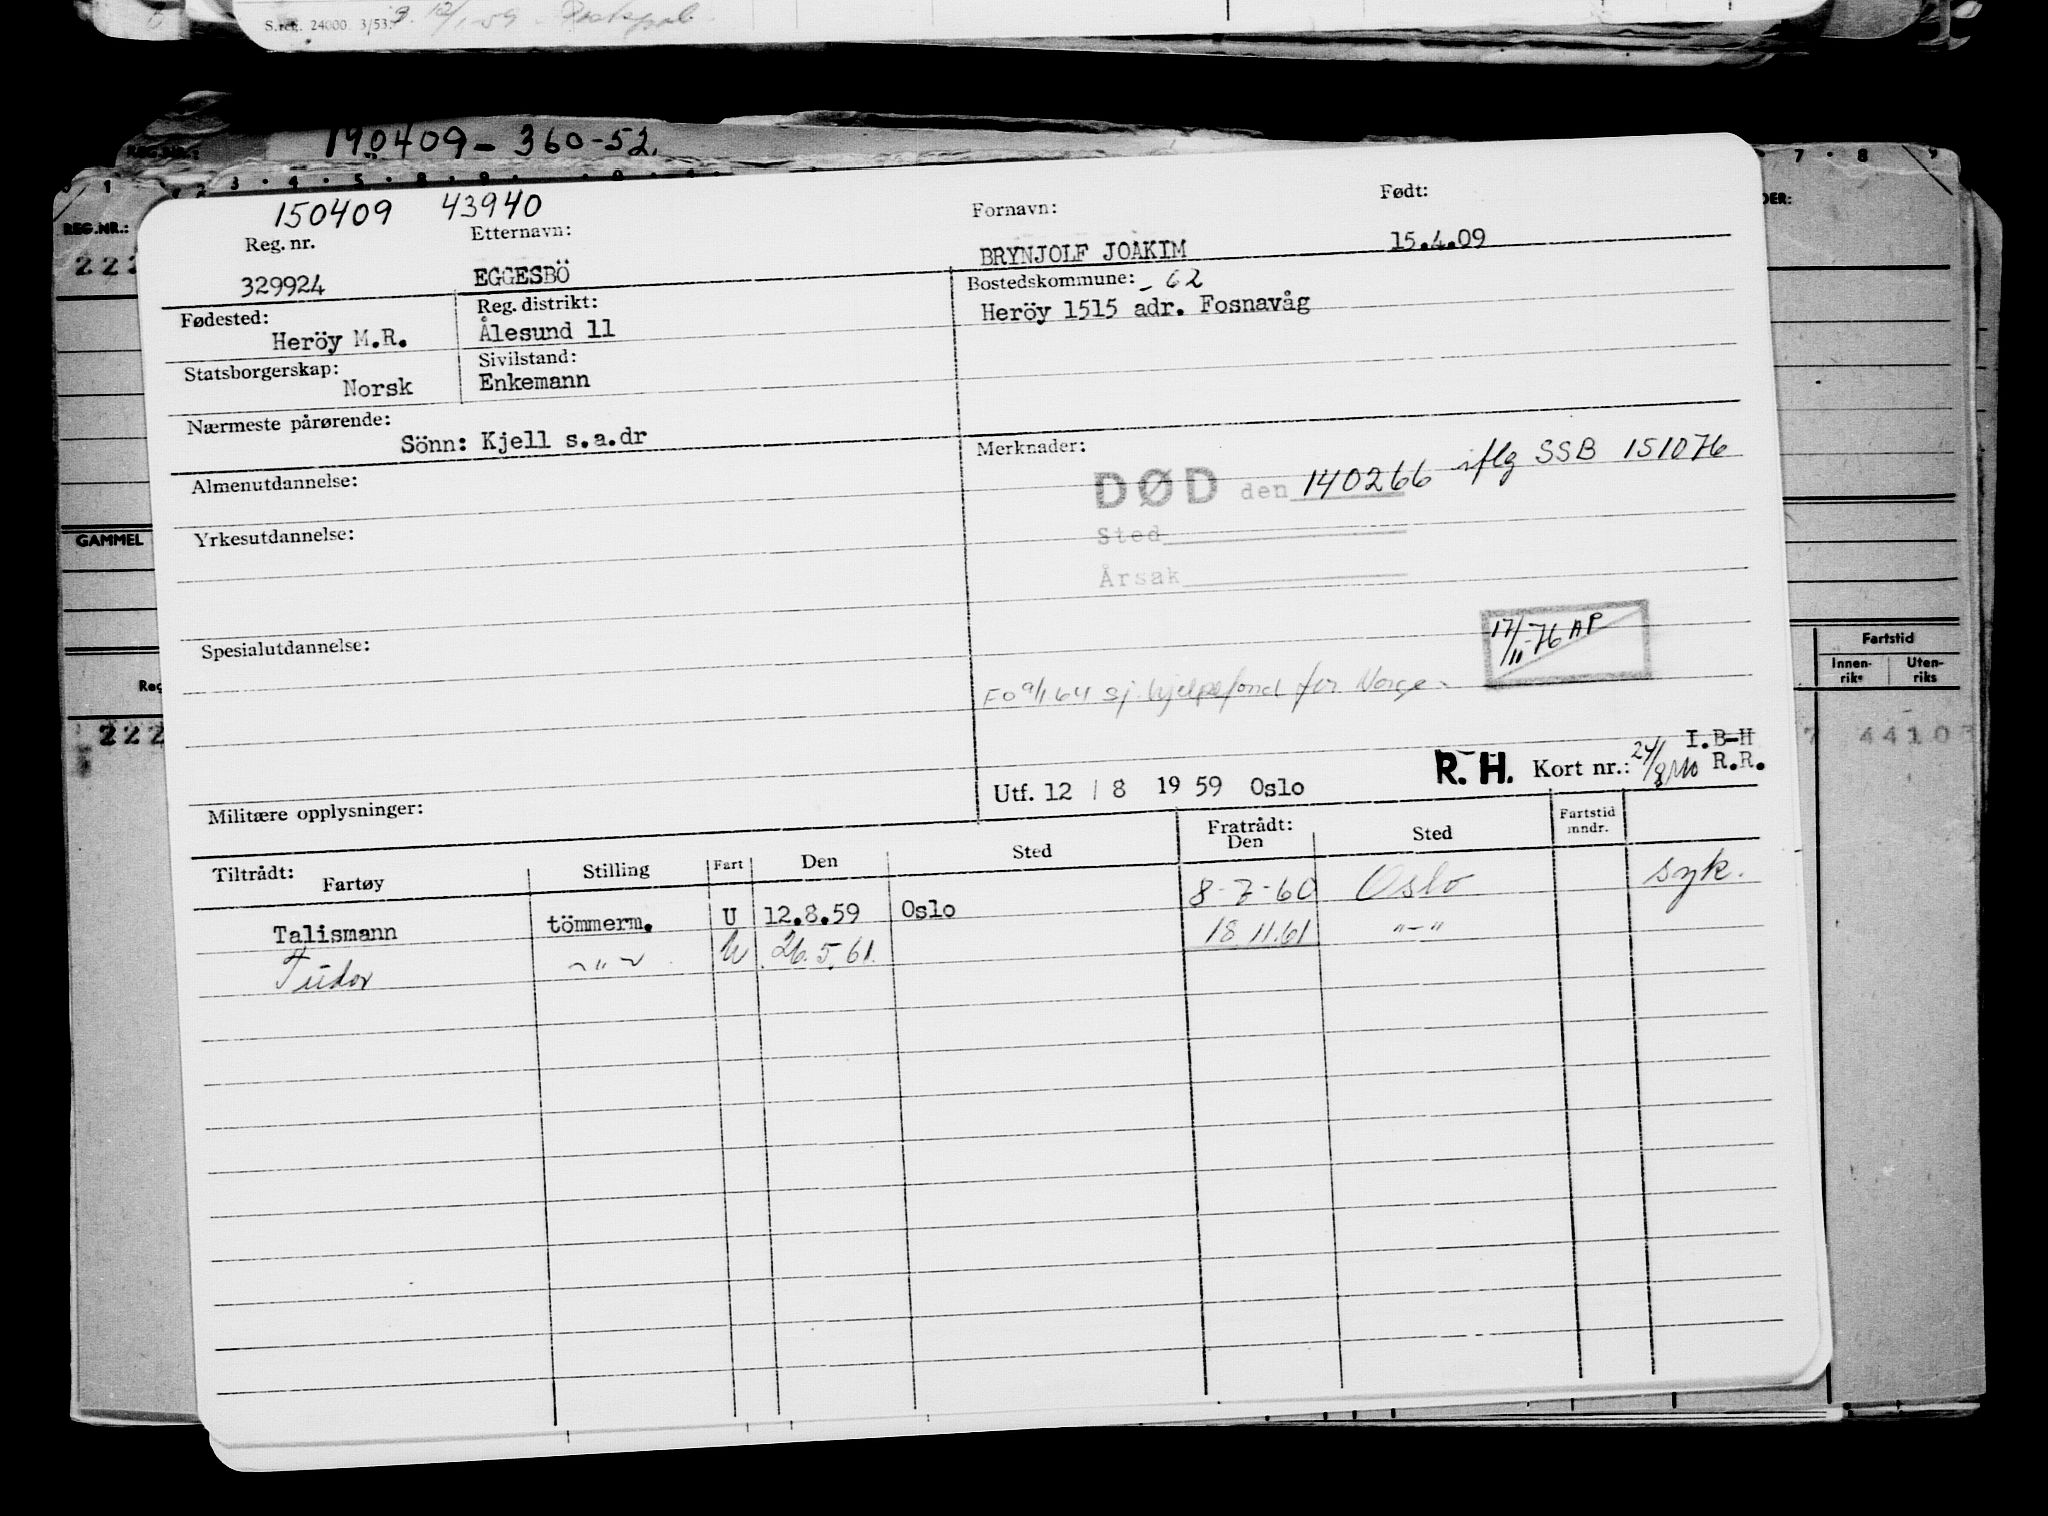 S.reg. 24000 3/53.
190409-360-52.
REG.NR.:
222
GAMMEL
Reg
222
7 · 8 · 9
DER:
Fartstid
Innen-riks Uten-riks
7 4410
150409 43940
Reg. nr. Etternavn: Fornavn: Født:
329924 EGGESBÖ BRYNJOLF JOAKIM 15.4.09
Fødested: Reg. distrikt: Bostedskommune: -62
Heröy M.R. Ålesund 11 Heröy 1515 adr. Fosnavåg
Statsborgerskap: Sivilstand:
Norsk Enkemann
Nærmeste pårørende: Merknader:
Sönn: Kjell s.a.dr
Almenutdannelse: DØD den 140266 iflg SSB 151076
Yrkesutdannelse: Sted
Årsak
17/11-76 AP
Spesialutdannelse:
FO 9/1 64 sj. hjelpefond for Norge.
I.B-H
R.H. Kort nr.: 24/8 R.R.
Militære opplysninger: Utf. 12 / 8 19 59 Oslo
Tiltrådt: Fratrådt:
Fartøy Stilling Fart Den Sted Den Sted Fartstid mndr.
Talismann tömmerm. U 12.8.59 Oslo 8-7-60 Oslo syk.
Tudor ~"~ U 26.5.61. 18.11.61 "-"